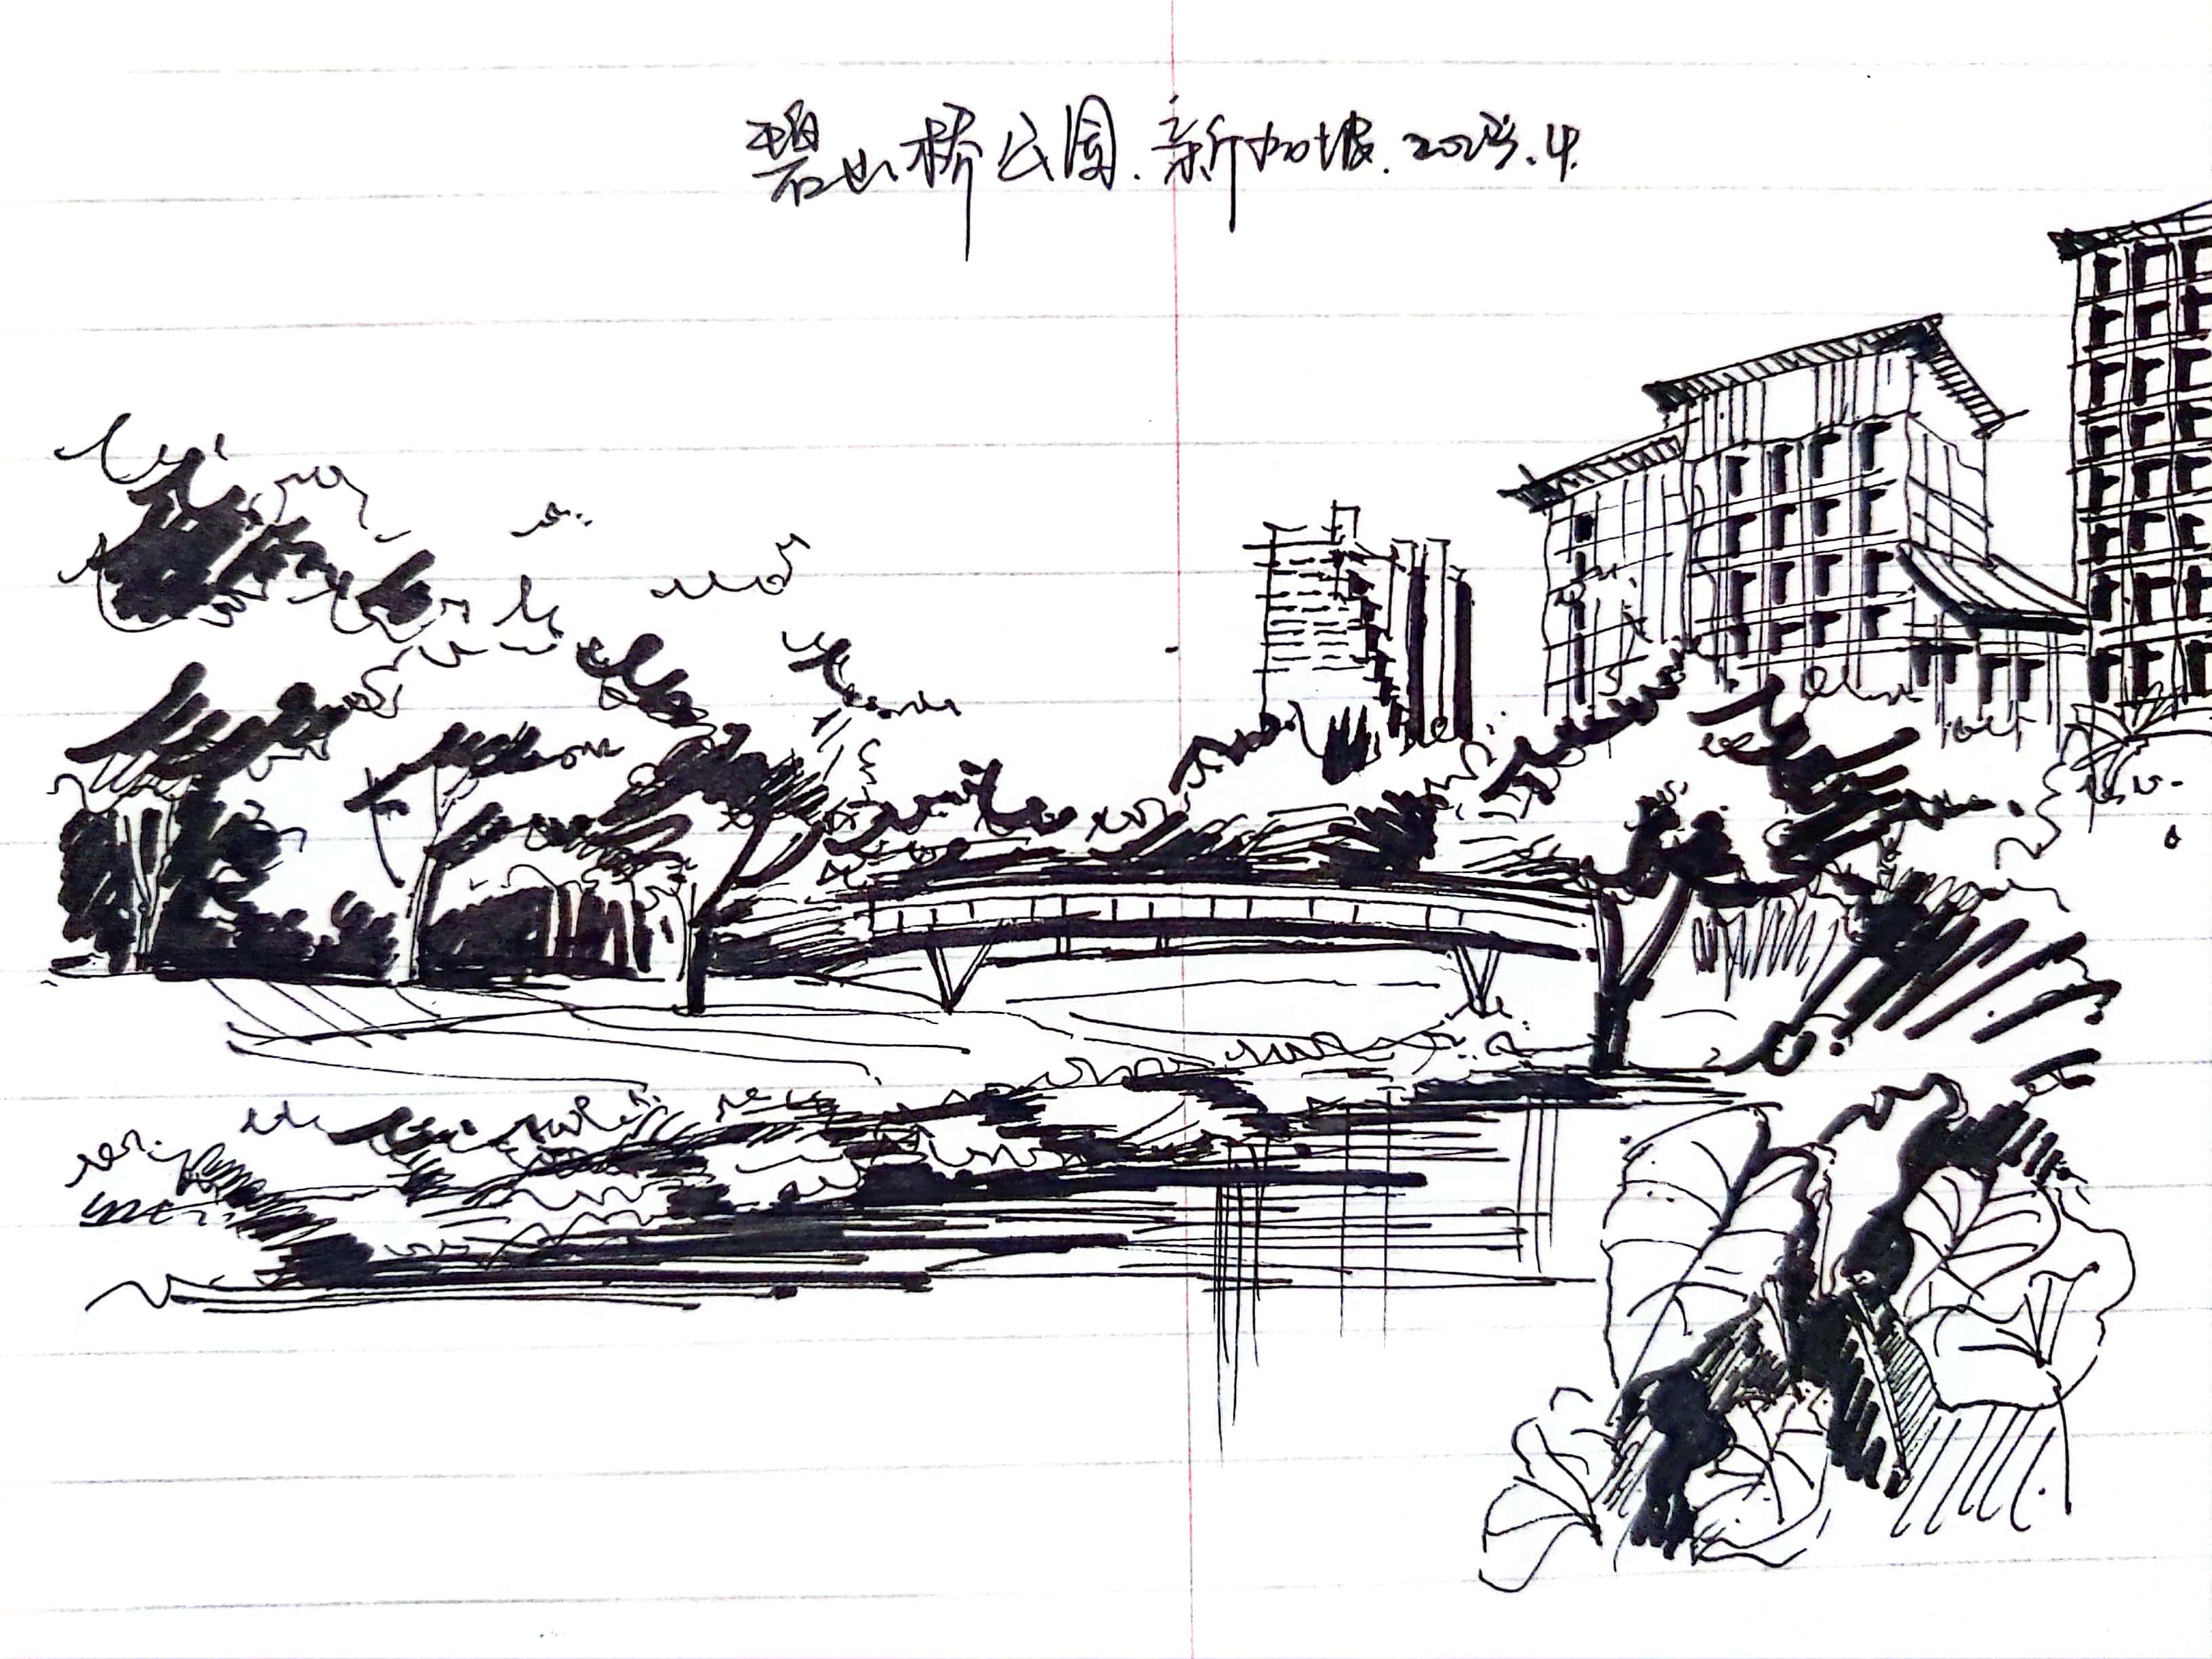 碧山桥公园.新加坡.2025.4.